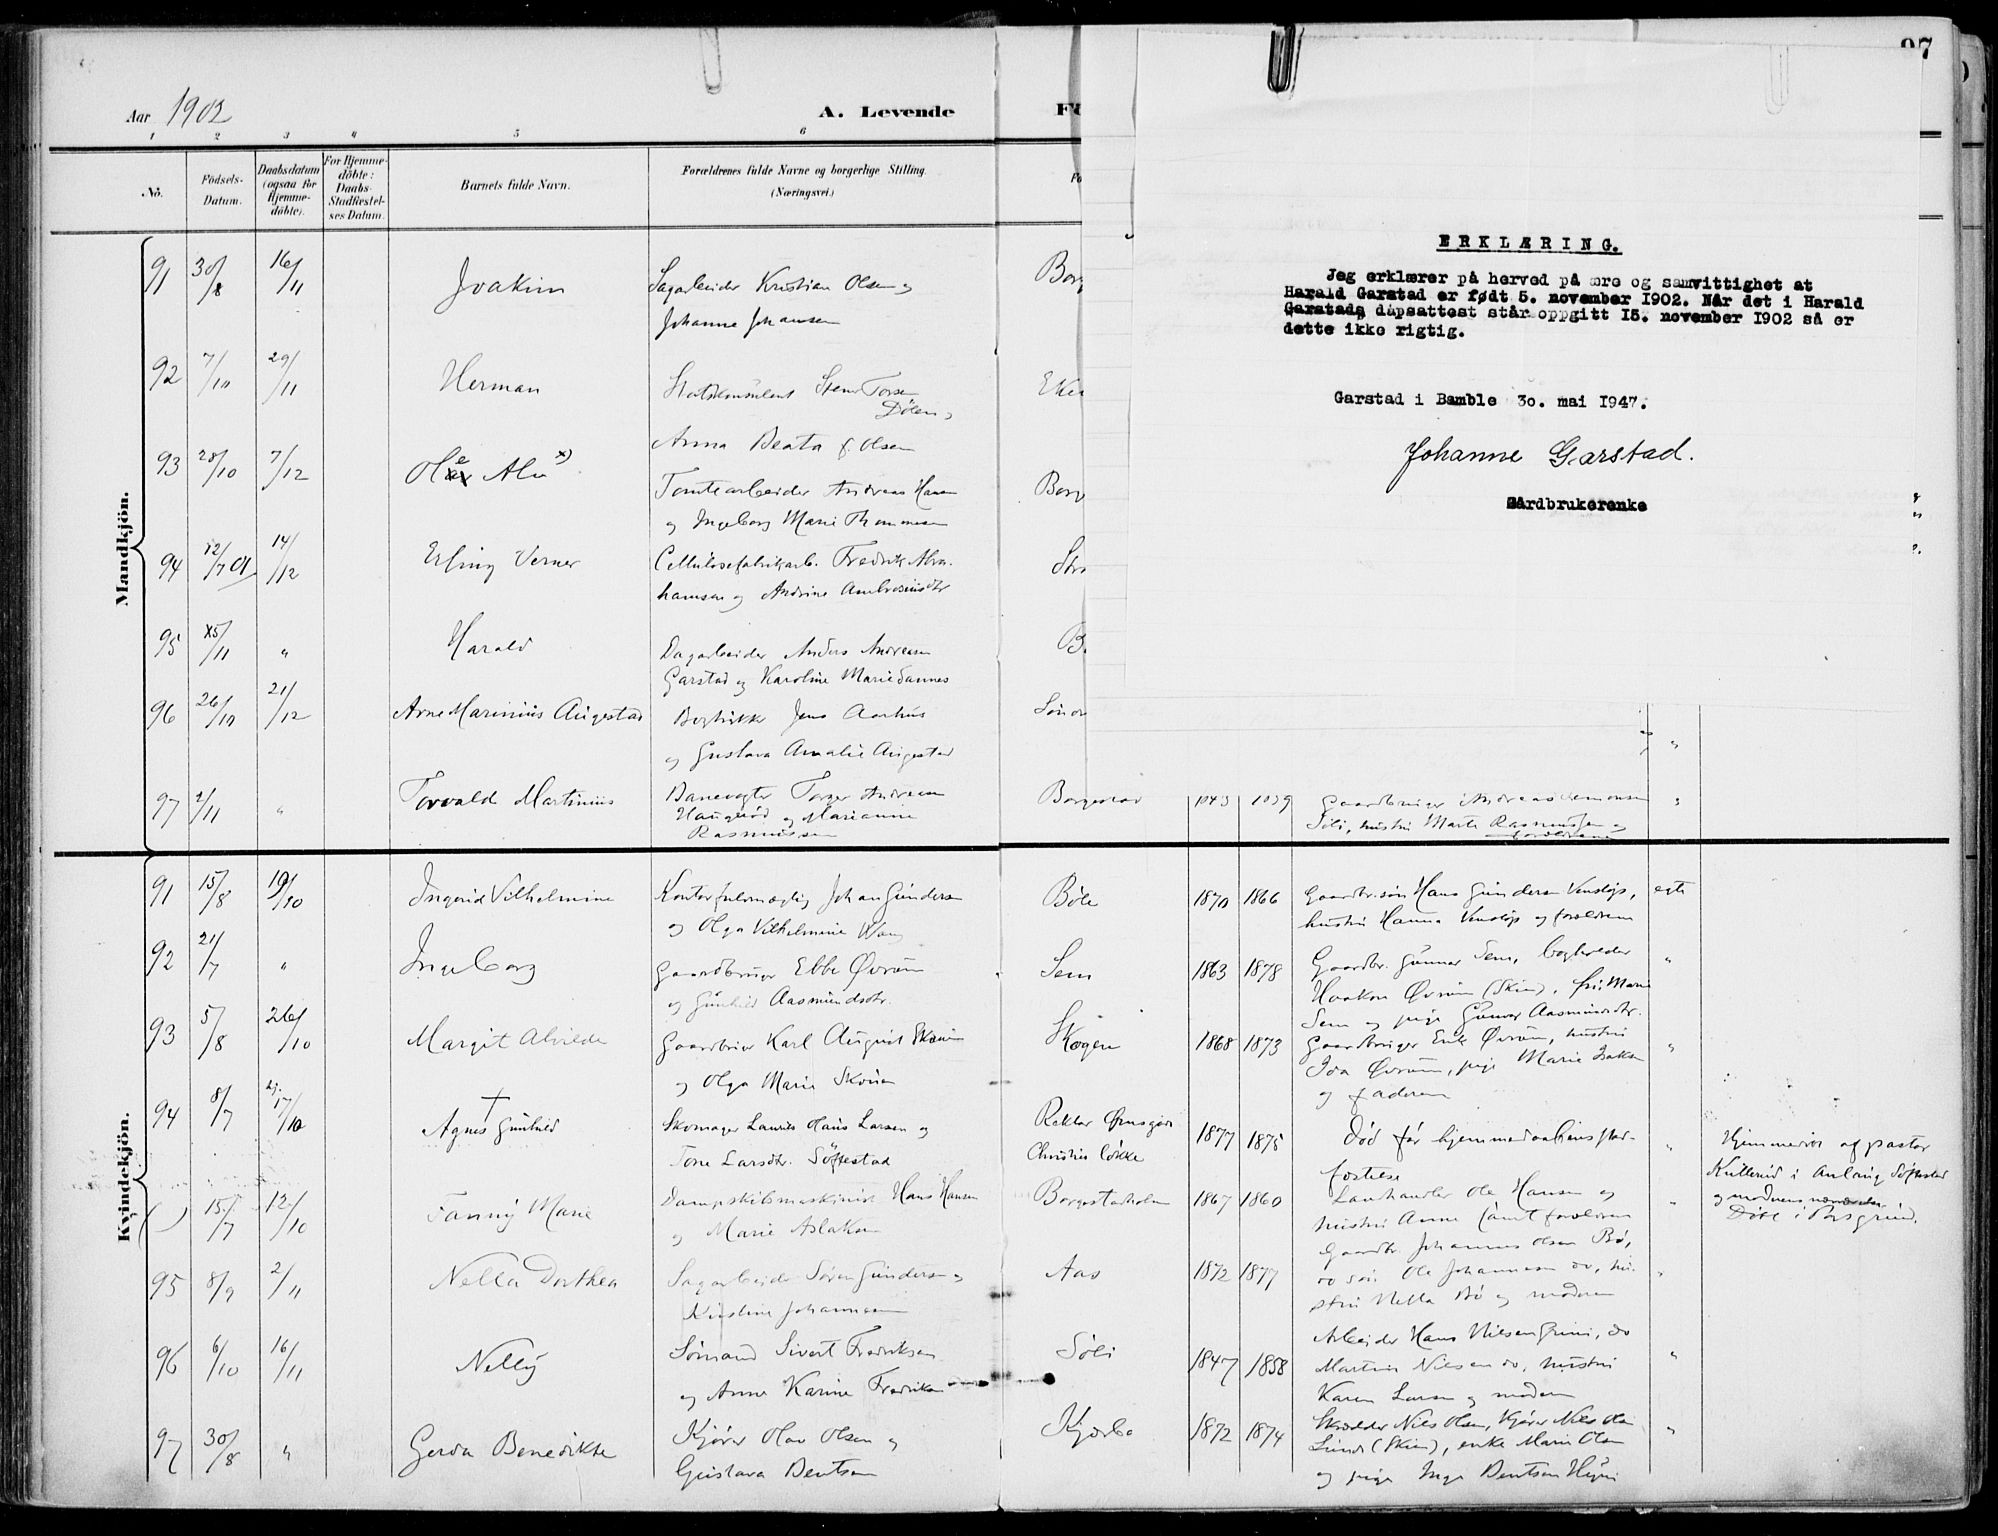 97
Aar 1902
A. Levende
Fö
1 2 3 4 5 6
No.
Födsels-
Datum.
Daabsdatum
(ogsaa for
Hjemme-
döbte).
For Hjemme-
döbte:
Daabs-
Stadfestel-
ses Datum.
Barnets fulde Navn.
Forældrenes fulde Navne og borgerlige Stilling.
(Næringsvei.)
Mandkjön.
91 30/8 16/11 Joakim Sagarbeider Kristian Olsen og Borg
Johanne Johansen
92 7/10 29/11 Herman Sten Torsen
Dölen,
Anna Beata f. Olsen
93 28/10 7/12 Ole Alu x)
Tomtearbeider Andreas Hansen Borg
og Ingeborg Marie Thommesen
94 12/7 01 14/12 Erling Verner Cellulosefabrikarb. Fredrik Abra-
hamsen og Andrine Ambrosiusdtr
95 x5/11 " Harald Dagarbeider Anders Andreasen
Garstad og Karoline Marie Sannes
96 26/10 21/12 Arne Marinius Augestad Jens Aarhus
og Gustava Amalie Augestad
"
97 2/11 " Torvald Martinius Banevogter Torger Andreasen Borgestad 1843 1859 Gaardbruger Andreas Simonsen "
Haugerød og Marianne
Rasmussen
Søli, hustru Marte Rasmussen og
forældrene
ERKLÆRING.
Jeg erklærer på herved på ære og samvittighet at
Harald Garstad er født 5. november 1902. Når det i Harald
Garstads dåpsattest står oppgitt 15. november 1902 så er
dette ikke rigtig.
Garstad i Bamble 30. mai 1947.
Johanne Garstad.
Gårdbrukerenke
Kvindekjön.
91 15/8 19/10 Ingerid Vilhelmine Kontorfuldmægtig Johan Gundersen Böle 1870 1866 Gaardbr.søn Hans Gundersen Venstøp, egte
og Olga Vilhelmine Wang hustru Hanna Venstøp og forældrene
92 21/7 " Ingeborg Gaardbruger Ebbe Øvrum Sem 1863 1878 Gaardbr. Gunnar Sem, "
og Gunhild Aasmundsdtr. Haakon Øvrum (Skien), frk. Marie
Sem og pige Gunvor Aasmundsdtr.
93 5/8 26/10 Margit Alvilde Gaardbruger Karl August Skogen 1868 1873 Gaardbruger Erik Øvrum, hustru "
og Olga Marie Ida Øvrum, pige Marie Isaksen
og faderen
94 8/7 hj. 17/10 Agnes Gunhild Skomager Laurits Hans Larsen og 1877 1875 Död før hjemmedaabens stad- " Hjemmedöbt af pastor
Tone Larsdtr. Söftestad Christies Løkke fæstelse Kullerud i Anledning Söftestad
og moderens
Døbt i Porsgrund.
( ) 15/7 12/10 Fanny Marie Dampskibsmaskinist Hans Hansen Borgestadholmen 1867 1860 Landhandler Ole Hansen og "
og Marie Aslaksen hustru Anne samt forældrene
95 8/9 2/11 Nella Dorthea Sagarbeider Søren Gundersen og Aas 1872 1877 Gaardbr. Johannes Olsen Bö,
Kirstine Johannesen do søn Ole Johannesen do, hu-
stru Nella Bö og moderen
96 6/10 16/11 Nelly Sømand Sivert Fredriksen Søli 1847 1858 Arbeider Hans Nilsen Grini, do "
og Anne Karine Fredriksen Martin Nilsen do, hustru
Karen Larsen og moderen
97 30/8 " Gerda Benedikte Kjører Olav Olsen og Kjørbo 1872 1874 Nils Olsen, Kjører Nils Olsen "
Gustava Bentsen Lund (Skien), enke Maren Olsen
og pige Inga Bentsen